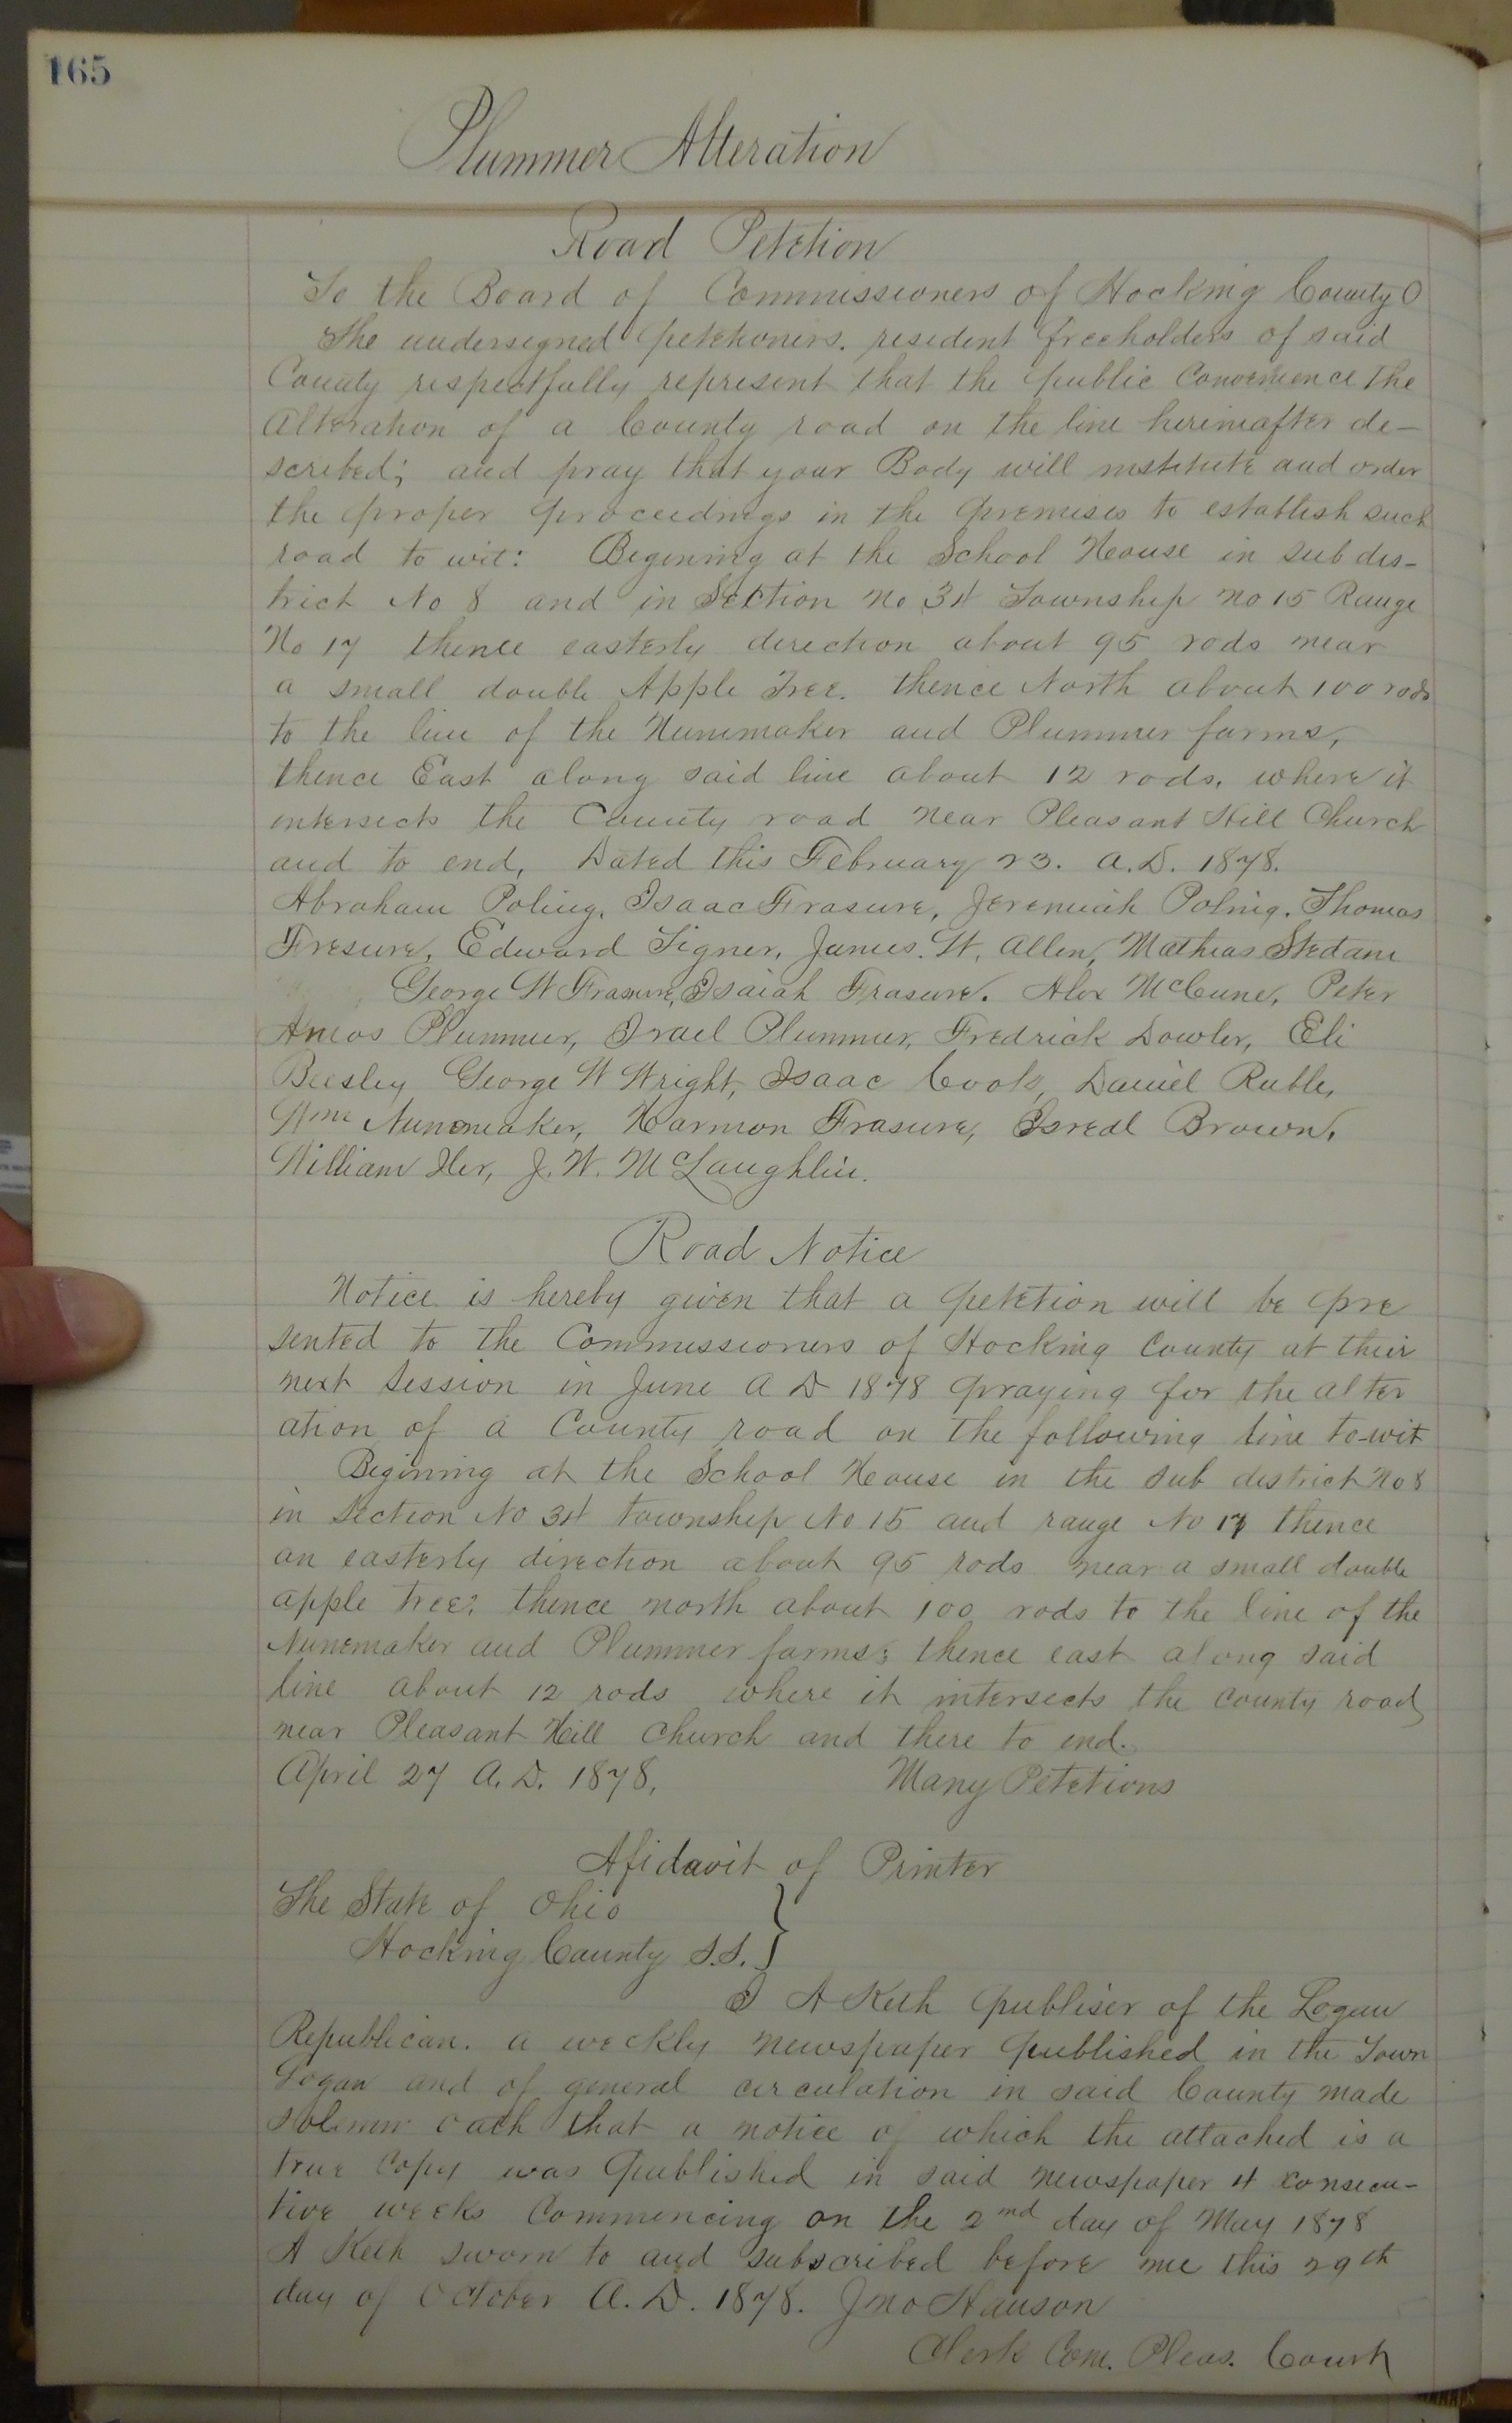 165
Plummer Alteration
Road Petetion
To the Board of Commissioners of Hocking County O
The undersigned petetioners. resident freeholders of said
County respectfully represent that the public Convenience the
Alteration of a County road on the line hereinafter de-
scribed; and pray that your Body will institute and order
the proper proceedings in the premises to establish such
road to wit: Begining at the School House in sub dis-
trict No 8 and in Section No 34 Township No 15 Range
No 17 thence easterly direction about 95 rods near
a small double Apple Tree. thence North about 100 rods
to the line of the Nunemaker and Plummer farms,
thence East along said line about 12 rods, where it
intersects the County road near Pleasant Hill Church
and to end, Dated this February 23. A.D. 1878.
Abraham Poling, Isaac Frasure, Jeremiah Poling. Thomas
Fresure, Edward Signer, James. W. Allen, Mathias Stedam
George W Frasure, Isaiah Frasure. Alex McCune, Peter
Amos Plummer, Israel Plummer, Fredrick Dowler, Eli
Beesley George W Wright, Isaac Cook, Daniel Ruble,
Wm Nunemaker, Harmon Frasure, Isreal Brown,
William Iler, J. W. McLaughlin.
Road Notice
Notice is hereby given that a petetion will be pre
sented to the Commissioners of Hocking County at their
next Session in June A D 1878 praying for the alter
ation of a County road on the following line to-wit
Begining at the School House in the sub district No 8
in Section No 34 township No 15 and range No 17 thence
an easterly direction about 95 rods near a small double
apple tree; thence north about 100 rods to the line of the
Nunemaker and Plummer farms; thence east along said
line about 12 rods where it intersects the county road
near Pleasant Hill Church and there to end.
April 27 A.D. 1878, Many Petetions
Afidavit of Printer
The State of Ohio
Hocking County S.S. }
I A Keck publiser of the Logan
Republican. a weekly newspaper published in the Town
Logan and of general circulation in said County made
solemn oath that a notice of which the attached is a
true Copy was published in said newspaper 4 consecu-
tive weeks Commencing on the 2nd day of May 1878
A Keck sworn to and subscribed before me this 29th
day of October A.D. 1878. Jno Hanson
Clerk Com. Pleas. Court